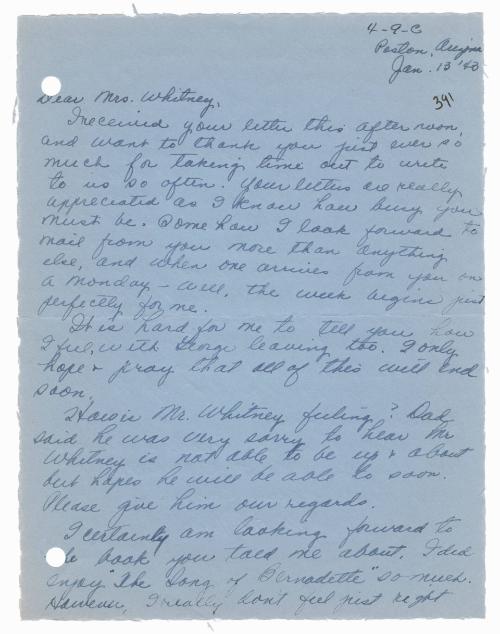 4-9-C
Poston, Arizona
Jan. 13 '43
391
Dear Mrs. Whitney,
I received your letter this afternoon,
and want to thank you just ever so
much for taking time out to write
to us so often. Your letters are really
appreciated as I know how busy you
must be. Somehow I look forward to
mail from you more than anything
else, and when one arrives from you on
a Monday - well, the week begins just
perfectly for me.
It is hard for me to tell you how
I feel, with George leaving too. I only
hope & pray that all of this will end
soon.
How is Mr. Whitney feeling? Dad
said he was very sorry to hear Mr
Whitney is not able to be up & about
but hopes he will be able to soon.
Please give him our regards.
I certainly am looking forward to
book you told me about. I did
enjoy "The Song of Bernadette" so much.
However, I really don't feel just right